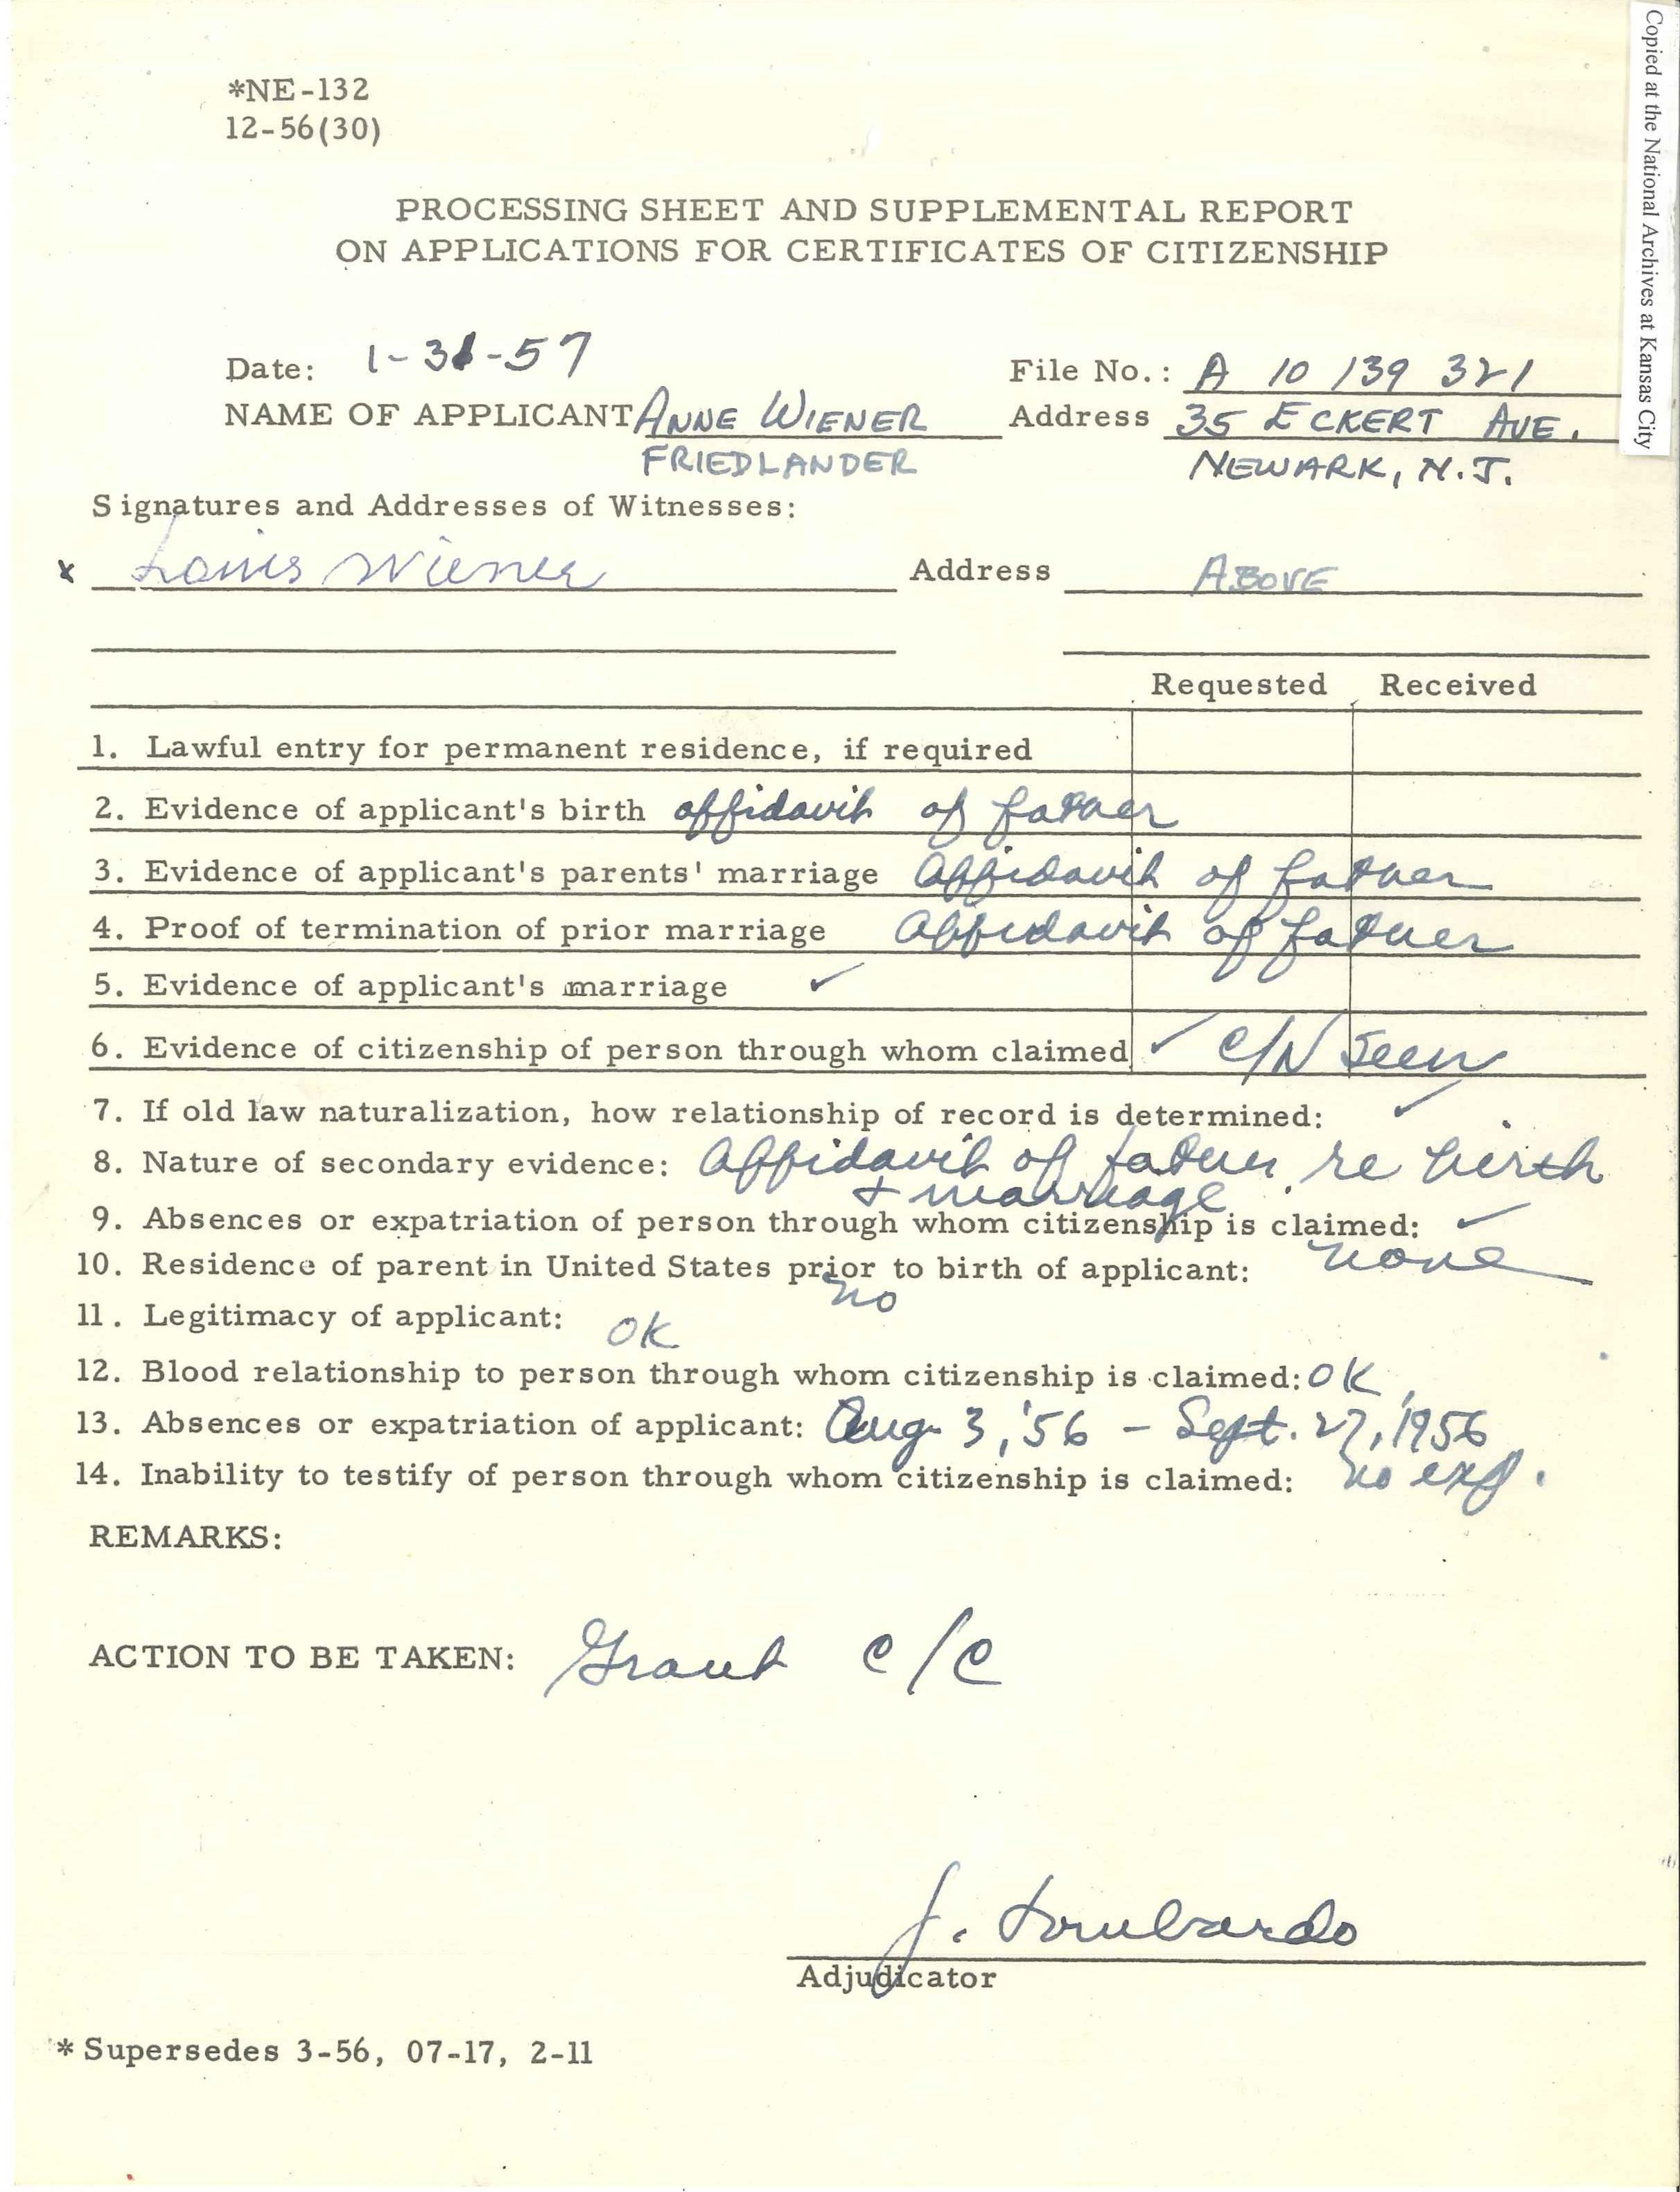 Copied at the National Archives at Kansas City
*NE-132
12-56(30)
PROCESSING SHEET AND SUPPLEMENTAL REPORT
ON APPLICATIONS FOR CERTIFICATES OF CITIZENSHIP
Date: 1-31-57 File No.: A 10 139 321
NAME OF APPLICANT ANNE WIENER Address 35 ECKERT AVE.
FRIEDLANDER NEWARK, N.J.
Signatures and Addresses of Witnesses:
x Louis Wiener Address ABOVE
Requested Received
1. Lawful entry for permanent residence, if required
2. Evidence of applicant's birth affidavit of father
3. Evidence of applicant's parents' marriage Affidavit of father
4. Proof of termination of prior marriage Affidavit of father
5. Evidence of applicant's marriage ✓
6. Evidence of citizenship of person through whom claimed ✓ C/N seen
7. If old law naturalization, how relationship of record is determined: ✓
8. Nature of secondary evidence: Affidavit of father re birth
+ marriage
9. Absences or expatriation of person through whom citizenship is claimed: ✓
10. Residence of parent in United States prior to birth of applicant: none
no
11. Legitimacy of applicant: OK
12. Blood relationship to person through whom citizenship is claimed: OK
13. Absences or expatriation of applicant: Aug. 3, '56 - Sept. 27, 1956
14. Inability to testify of person through whom citizenship is claimed: no exp.
REMARKS:
ACTION TO BE TAKEN: Grant C/C
J. Lombardo
Adjudicator
* Supersedes 3-56, 07-17, 2-11